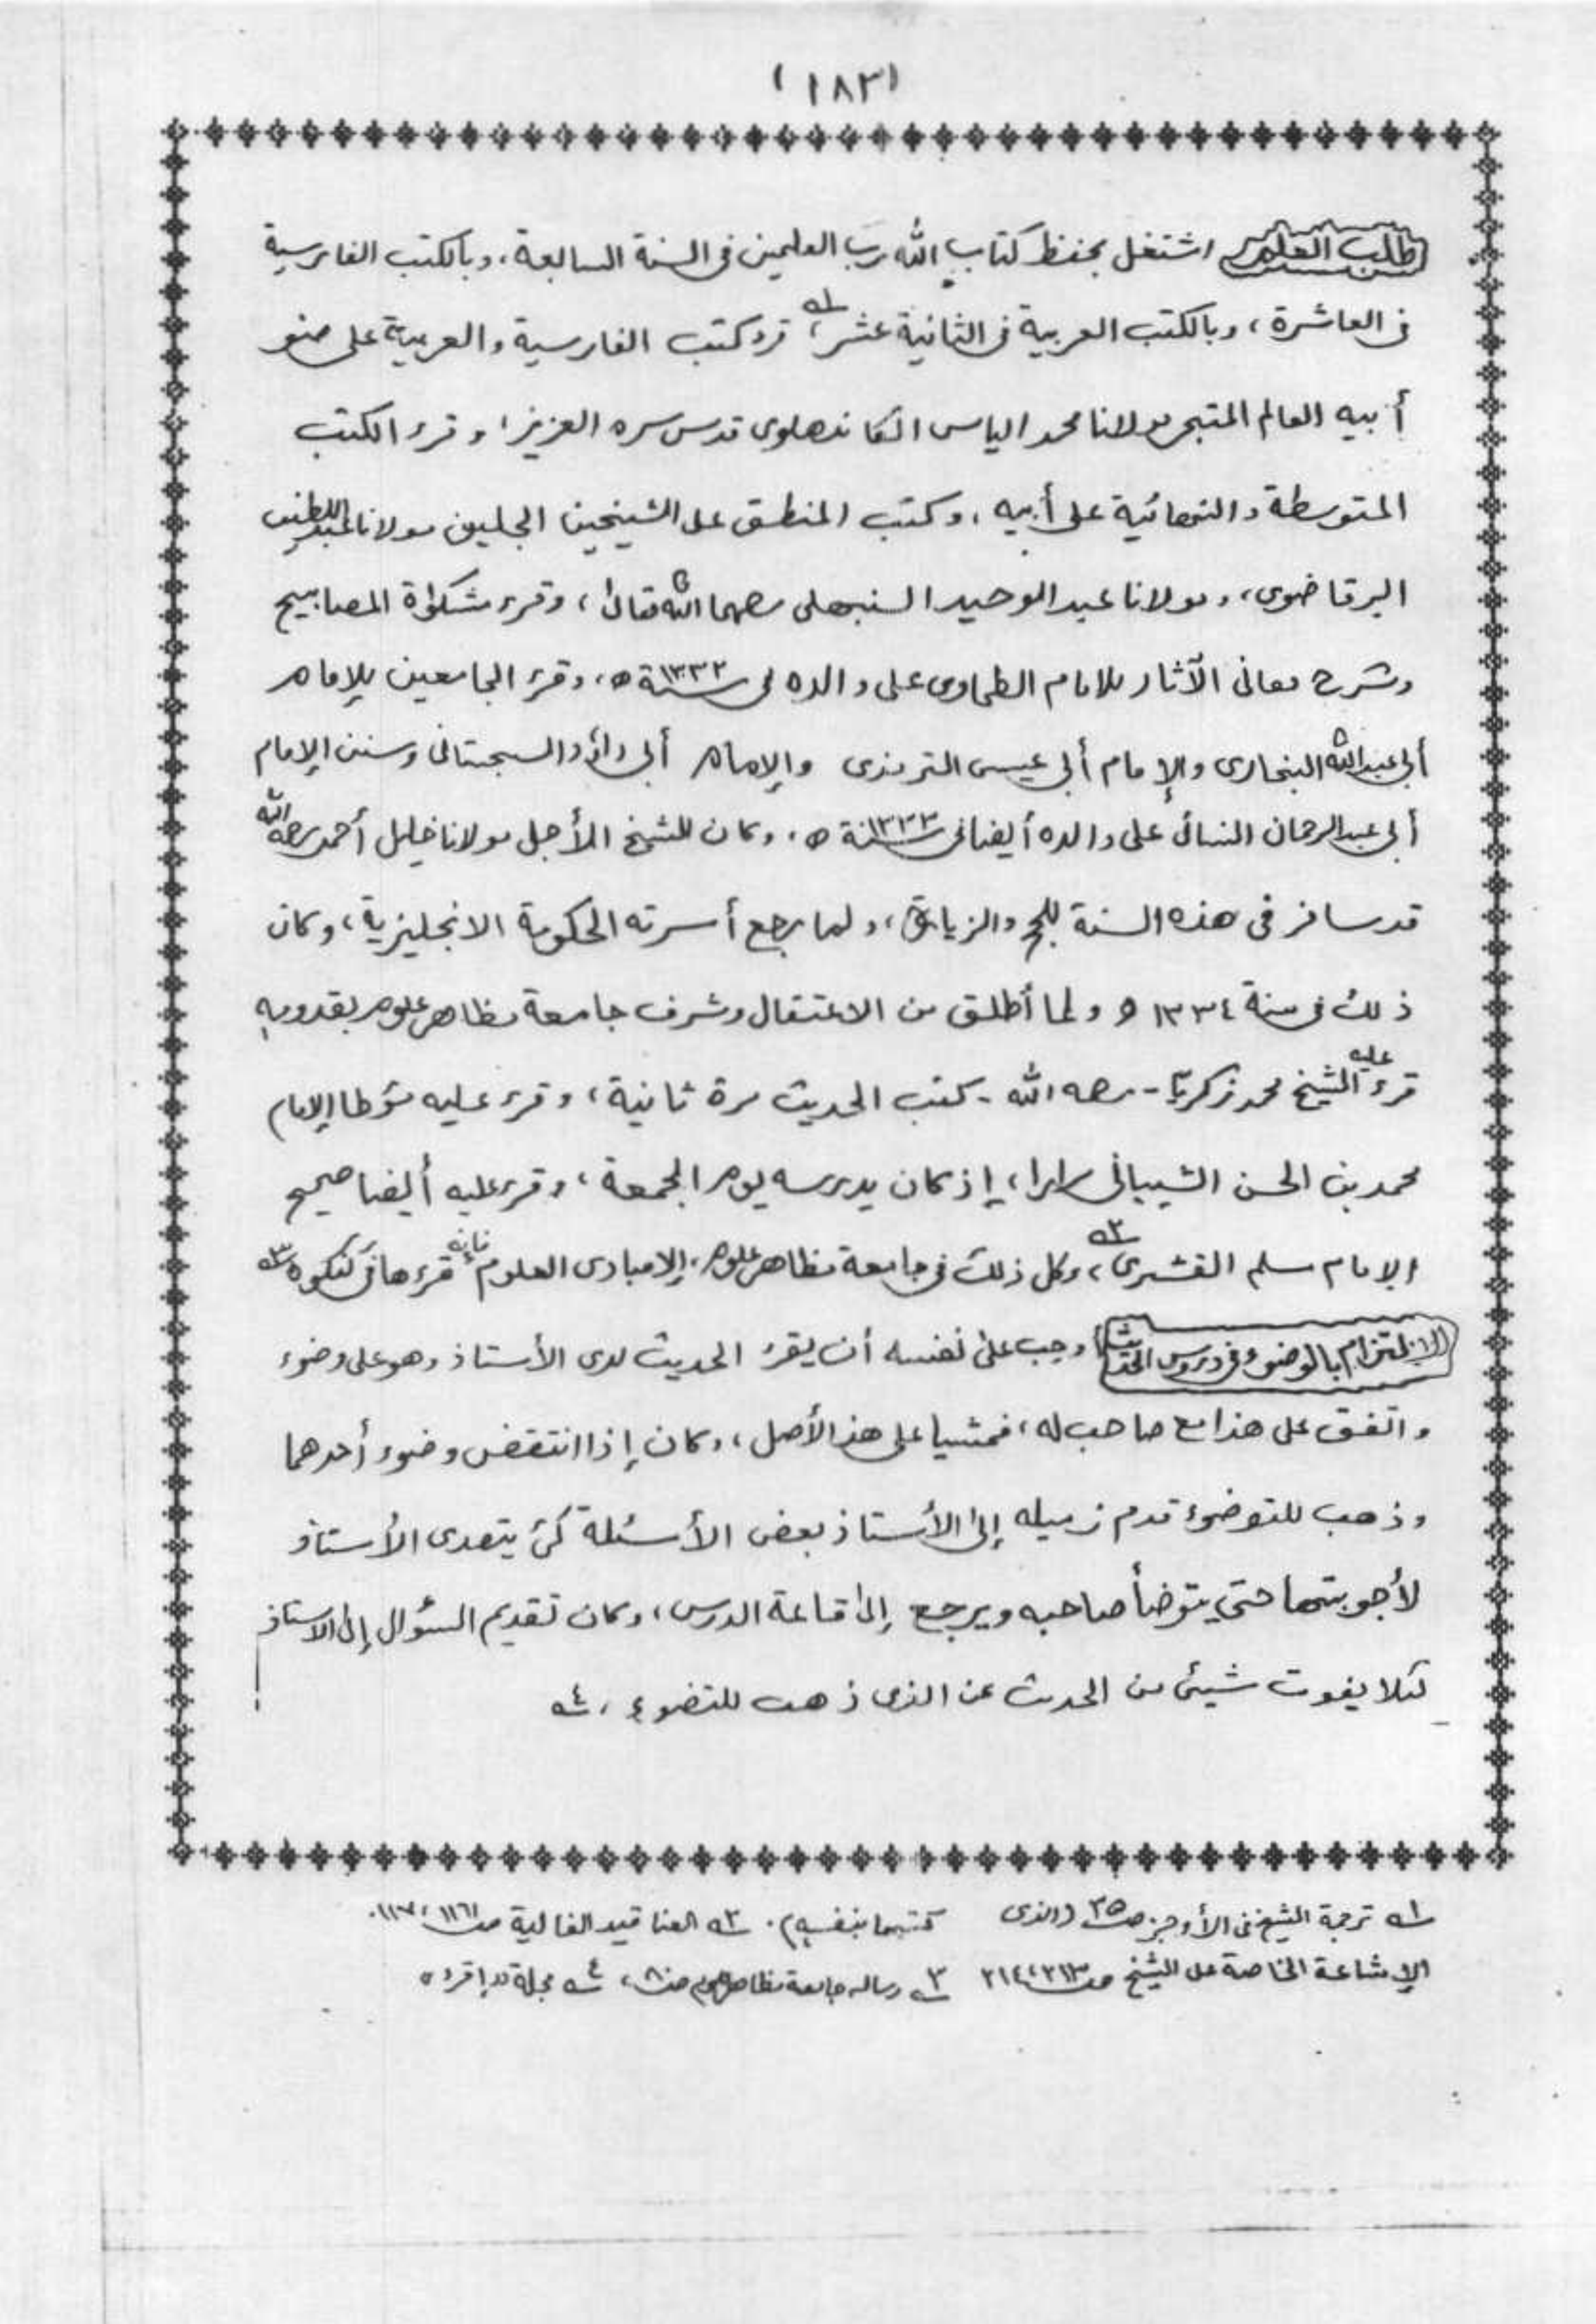 (١٨٣)
طلب العلم اشتغل بحفظ كتاب الله رب العلمين فى السنة السابعة، وبالكتب الفارسية
فى العاشرة، وبالكتب العربية فى الثانية عشر،١ـه قرء كتب الفارسية والعربية على صنو
أبيه العالم المتبحر مولانا محمد الياس الكاندهلوى قدس سره العزيز، وقرء الكتب
المتوسطة والنهائية على أبيه، وكتب المنطق على الشيخين الجليلين مولانا عبد اللطيف
البرقاضوى، ومولانا عبد الوحيد السنبهلى رحمهما الله تعالىٰ، وقرء مشكوٰة المصابيح
وشرح معانى الآثار للامام الطحاوى على والده فى سنة ١٣٣٢ه، وقرء الجامعين للإمام
أبى عبد الله البخارى والإمام أبى عيسى الترمذى والإمام أبى داؤد السجستانى وسنن الإمام
أبى عبد الرحمان النسائى على والده أيضا فى سنة ١٣٣٣ه، وكان للشيخ الأجل مولانا خليل أحمد رحمه الله
قد سافر فى هذه السنة للحج والزيارة، ولما رجع أسرته الحكومة الانجليزية، وكان
ذلك فى سنة ١٣٣٤ه ولما أطلق من الاعتقال وشرف جامعة مظاهر علوم بقدومه
قرء عليه الشيخ محمد زكريّا - رحمه الله - كتب الحديث مرة ثانية، وقرء عليه مؤطا الإمام
محمد بن الحسن الشيبانى مرارا، إذ كان يدرسه يوم الجمعة، وقرء عليه أيضا صحيح
الإمام مسلم القشيرى،٢ـه وكل ذلك فى جامعة مظاهر علوم، إلا مبادى العلوم فإنه قرءها فى گنگوه ٣ـه
الالتزام بالوضوء فى دروس الحديث أوجب علىٰ نفسه أن يقرء الحديث لدى الأستاذ وهو على وضوء
واتفق على هذا مع صاحب له، فمشيا على هذا الأصل، وكان إذا انتقض وضوء أحدهما
وذهب للتوضوء قدم زميله إلىٰ الأستاذ بعض الأسئلة كئ يتصدى الأستاذ
لأجوبتها حتى يتوضأ صاحبه ويرجع إلىٰ قاعة الدرس، وكان تقديم السؤال إلى الاستاذ
لئلا يفوت شيئ من الحدث عن الذى ذهب للتضوء، ٤ـه
١ـه ترجمة الشيخ فى الأوجز صـ ٣٥ (الذى كتبها بنفسه). ٢ـه العناقيد الغالية صـ ١١٦، ١١٧.
الإشاعة الخاصة على الشيخ صـ ٢١٣، ٢١٤ ٣ـه رساله جامعة مظاهر علوم صـ ٨، ٤ـه مجلة "إقرء"